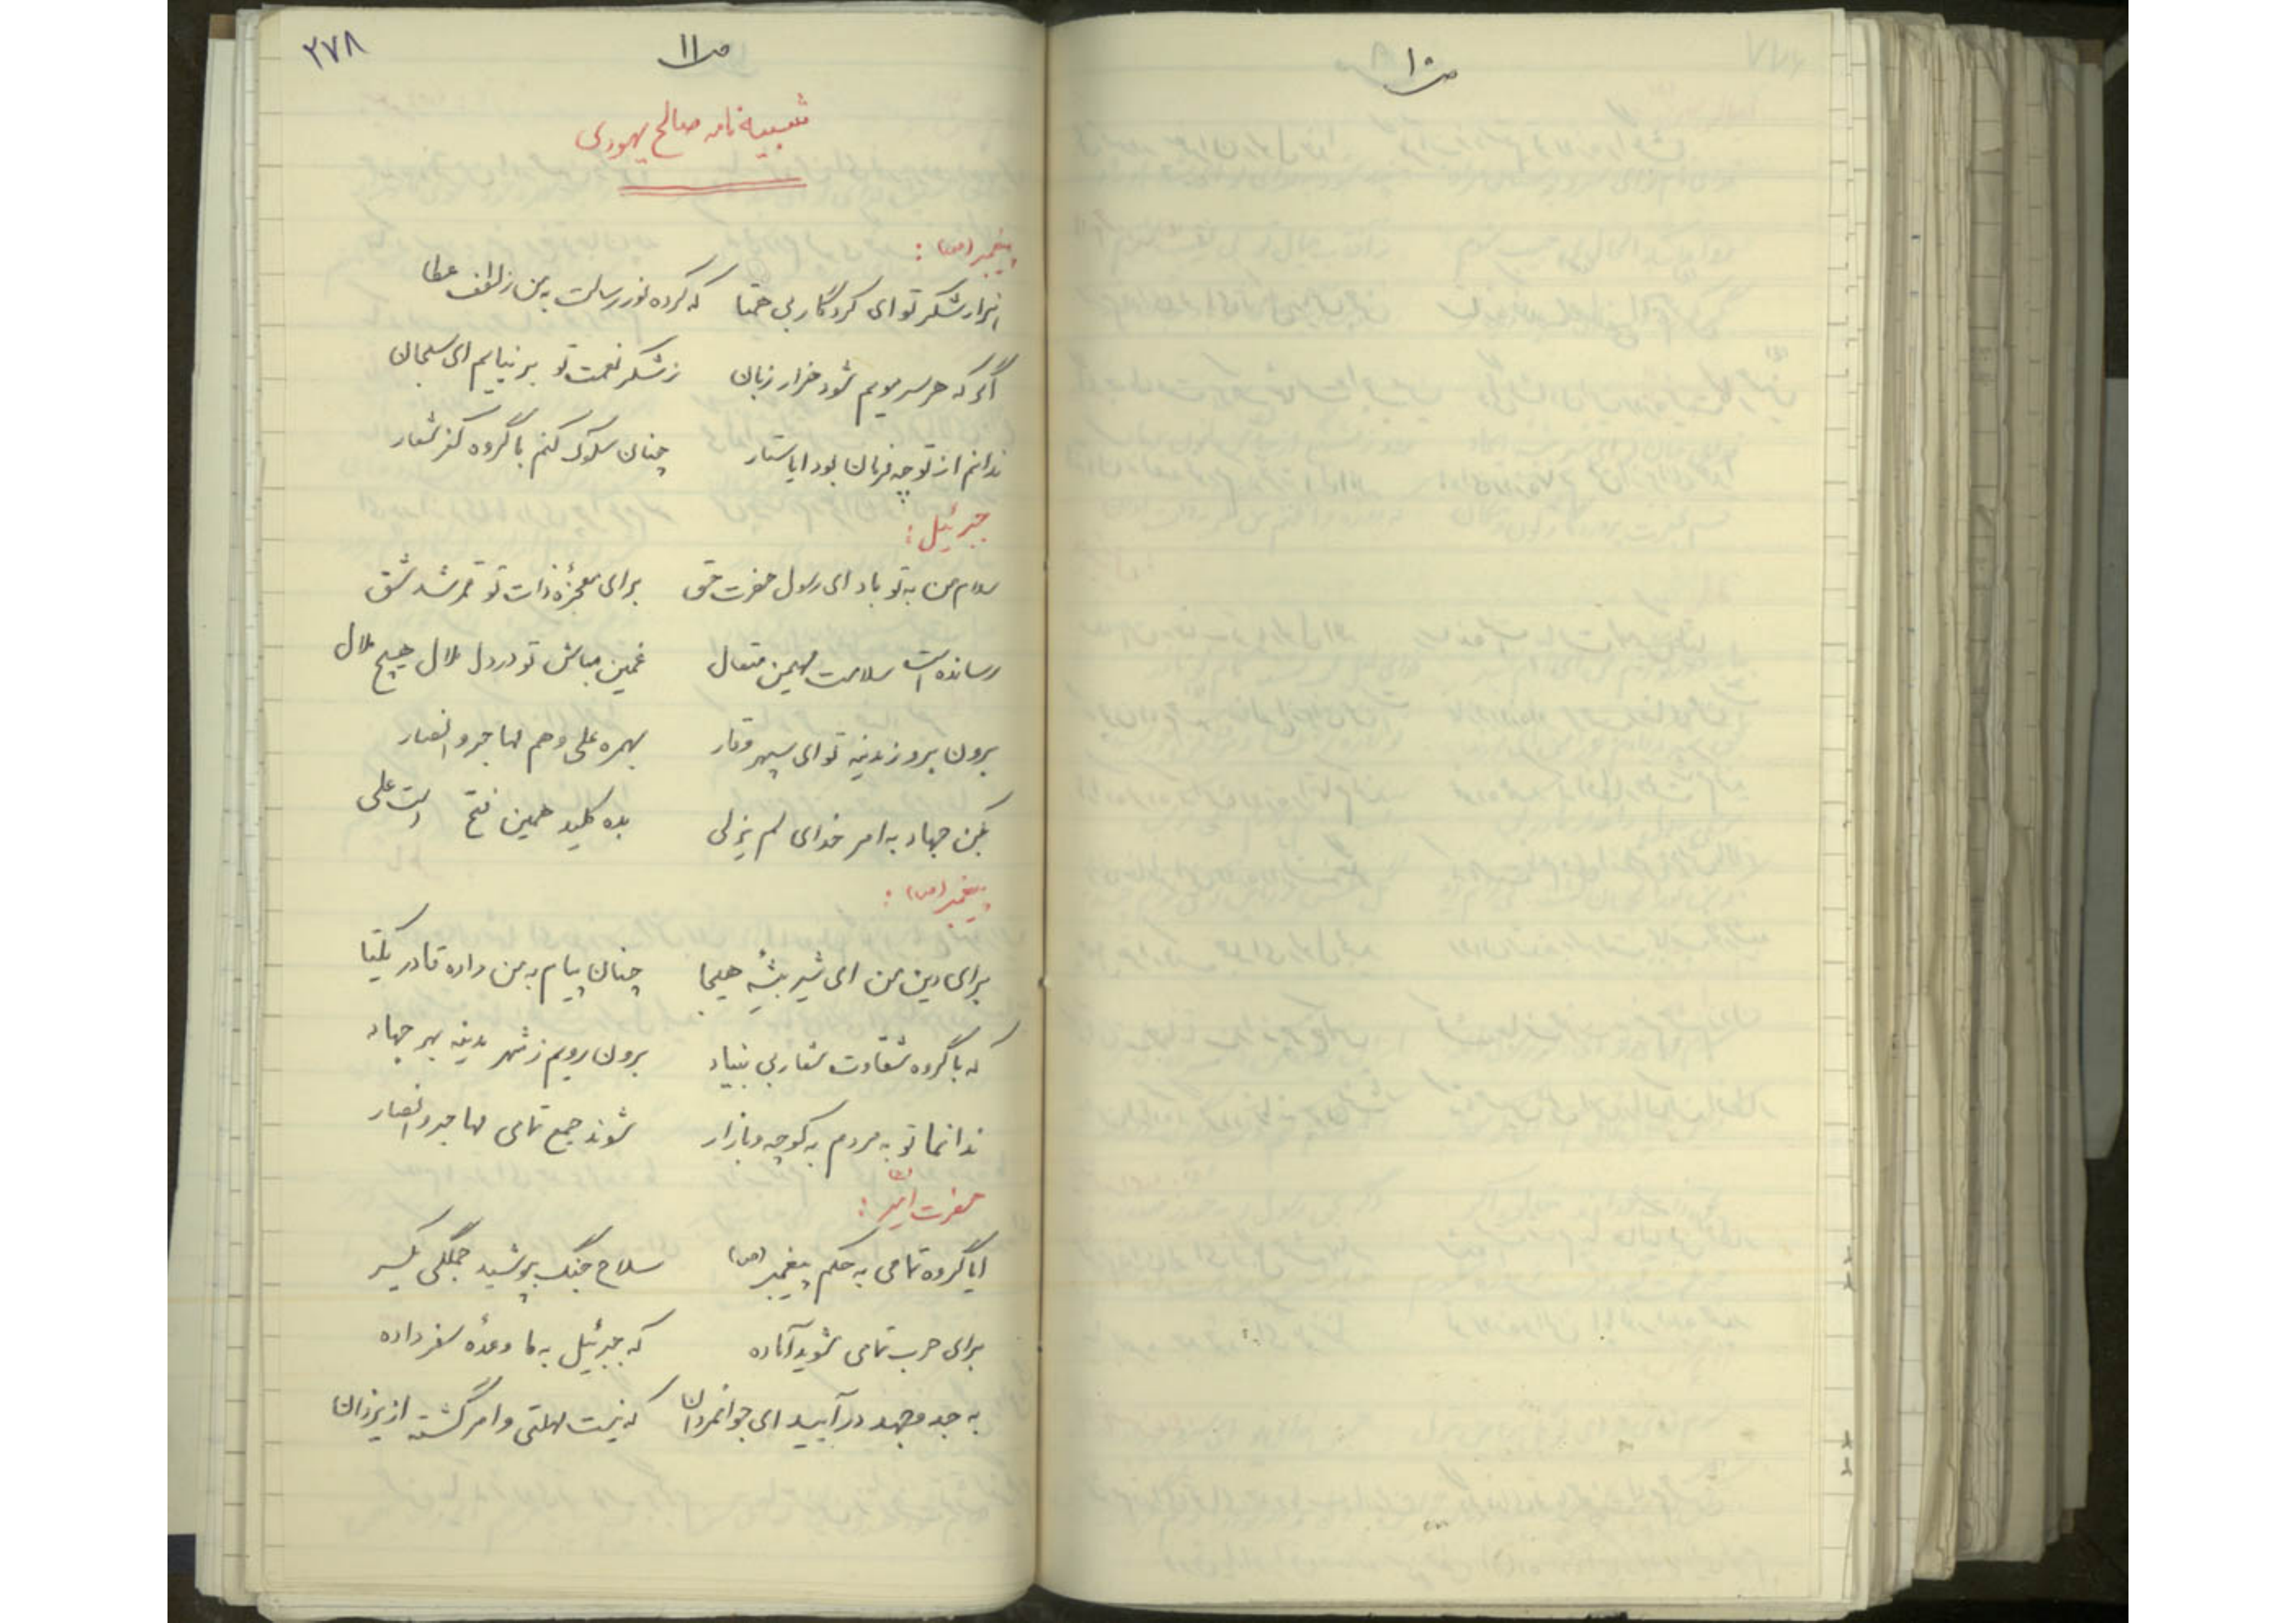 ص ۱۰
ص ۱۱
۲۷۸
شبیه نامه صالح یهودی
پیغمبر (ص) :
هزار شکر تو ای کردگار بی همتا که کرده نور رسالت به من ز لطف عطا
اگر که هر سر مویم شود هزار زبان ز شکر نعمت تو بر نیایم ای سبحان
ندانم از تو چه فرمان بود ایا ستار چنان سلوک کنم با گروه کفر شعار
جبرئیل :
سلام من به تو باد ای رسول حضرت حق برای معجزه ذات تو قمر شد شق
رسانده است سلامت مهیمن متعال غمین مباش تو در دل ملال هیچ ملال
برون برو ز مدینه تو ای سپهر وقار بهمره علی و هم مهاجر و انصار
بکن جهاد به امر خدای لم یزلی بده کلید همین فتح است علی
پیغمبر (ص) :
برای دین من ای شیر بیشهٔ هیجا چنان پیام به من داده قادر یکتا
که با گروه شقاوت شعار بی بنیاد برون رویم ز شهر مدینه بهر جهاد
ندا نما تو به مردم به کوچه و بازار شوند جمع تمامی مهاجر و انصار
حضرت امیر :
ایا گروه تمامی به حکم پیغمبر (ص) سلاح جنگ بپوشید جملگی یکسر
برای حرب تمامی شوید آماده که جبرئیل به ما وعدهٔ سفر داده
به جد و جهد در آیید ای جوانمردان که نیست مهلتی و امر گشته از یزدان